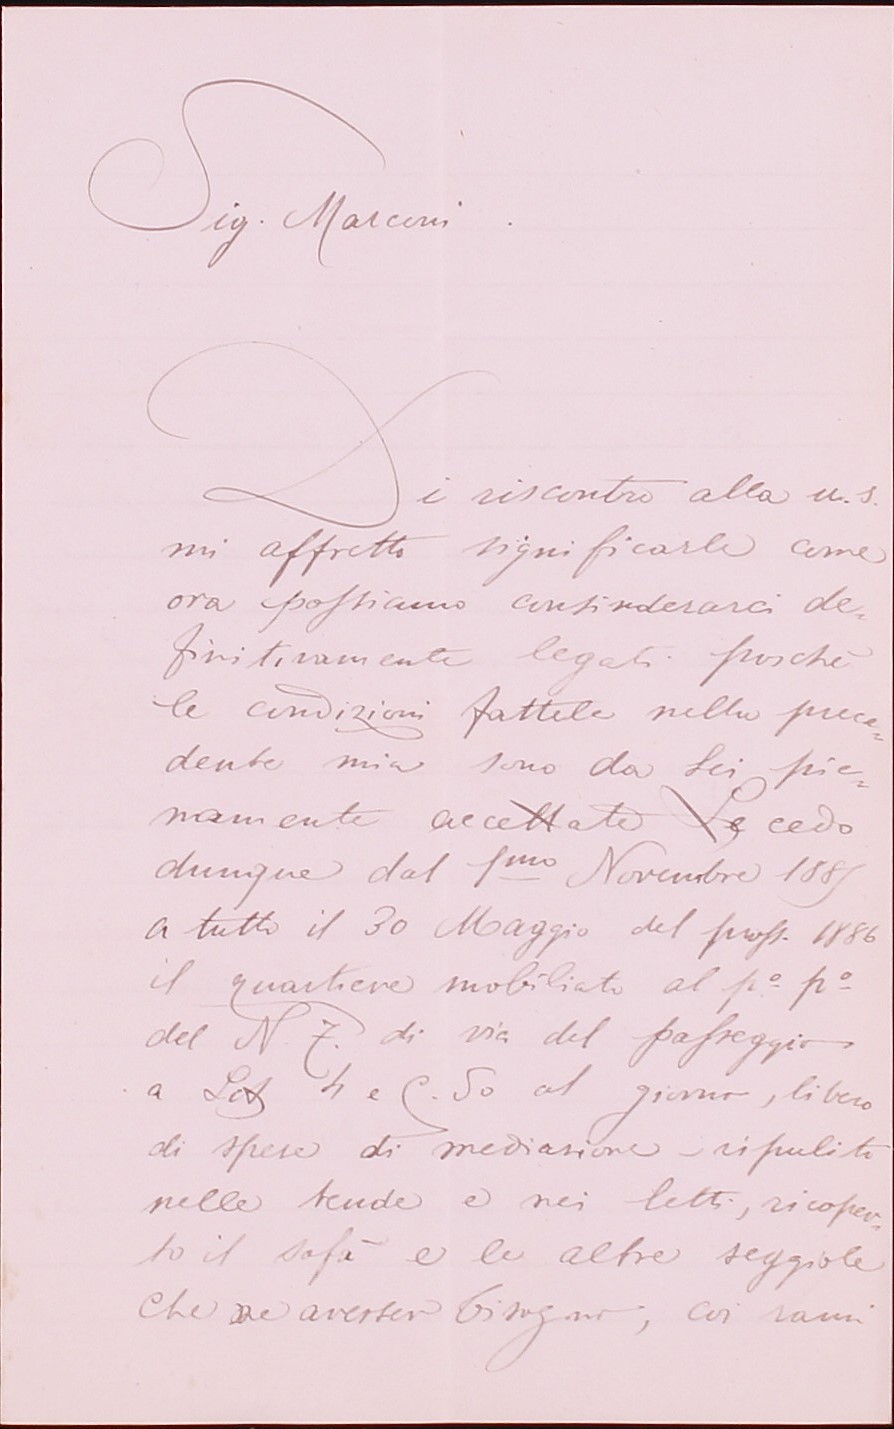 Sig. Marconi.
Di riscontro alla u. s.
mi affretto significarle come
ora possiamo consinderarci de=
finitivamente legati poichè
le condizioni fattele nella prece=
dente mia sono da Lei pie=
namente accettate Le cedo
dunque dal 1mo Novembre 1885
a tutto il 30 Maggio del pross. 1886
il quartiere mobiliato al po. po.
del N. 7. di via del passeggio
a 4 e C. 50 al giorno, libero
di spese di mediasione - ripulito
nelle tende e nei letti, ricoper=
to il sofà e le altre seggiole
che ne avesser bisogno, coi rami